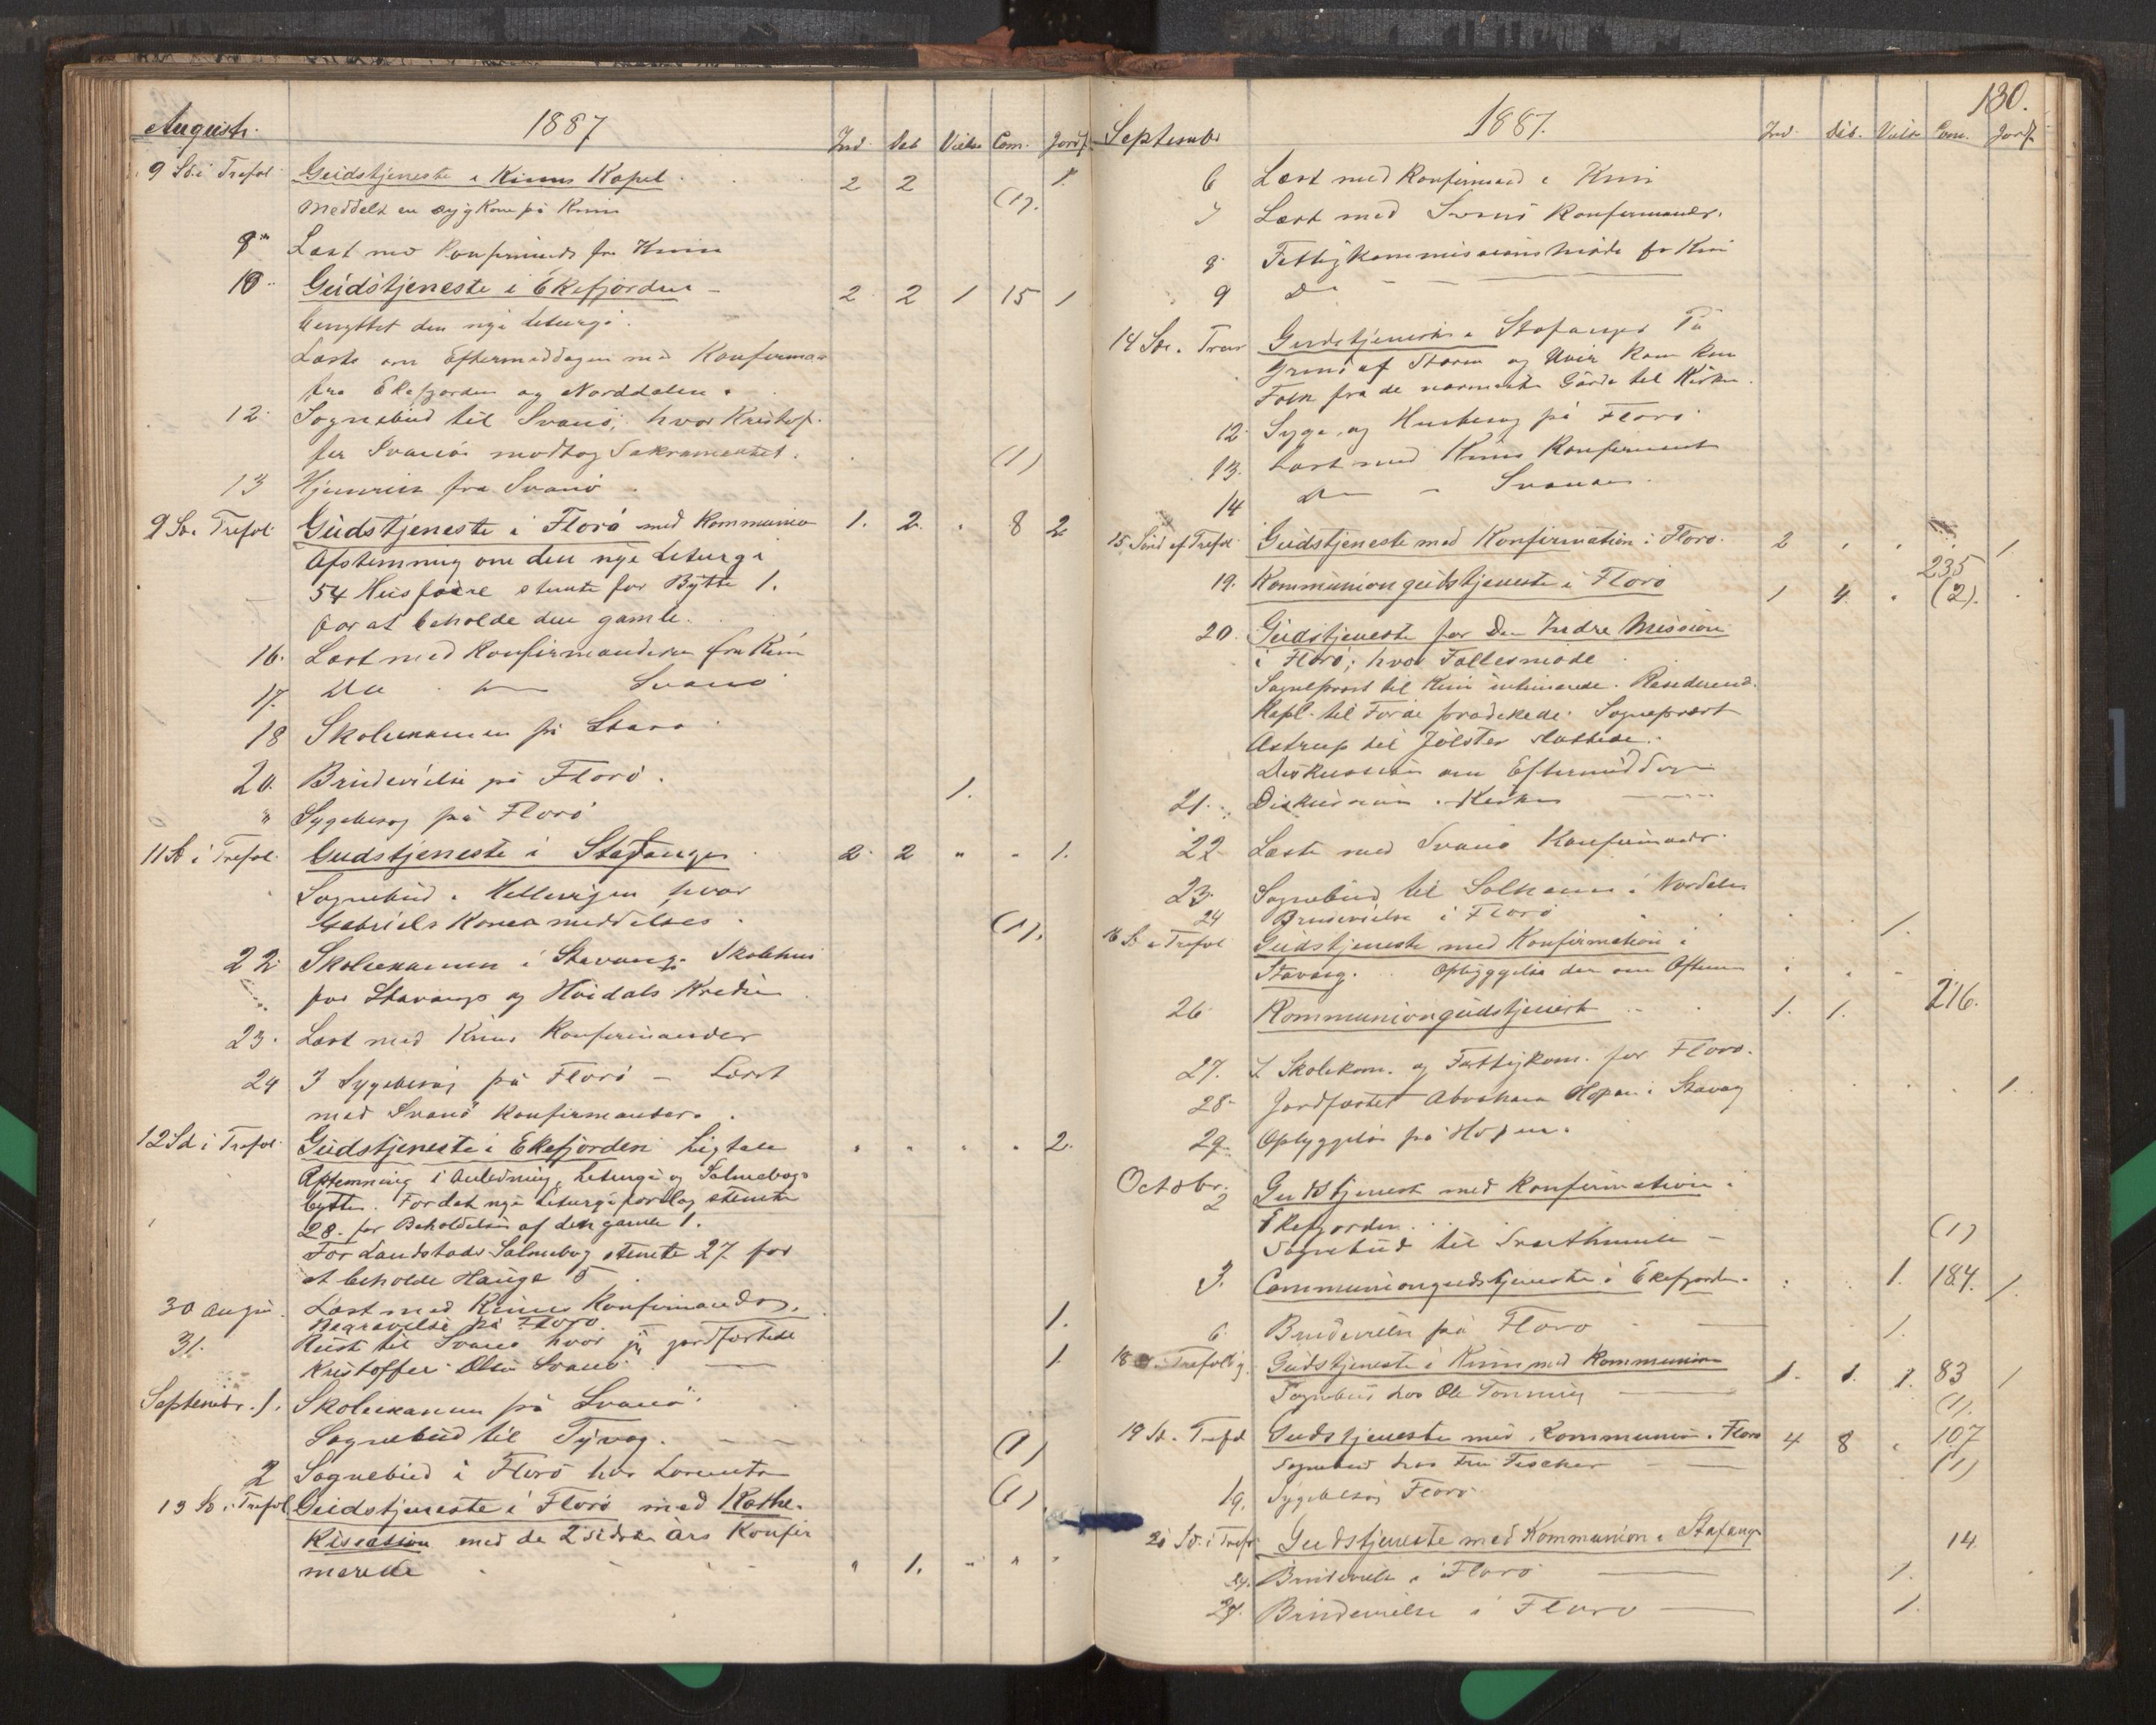 August. 1887 Ind. Dab Vielse Com. Jordf.
9 Sd. i Trefol. Gudstjeneste i Kinns Kapel. 2 2 1.
Meddelt en syg Kone på Kinn (1).
9 Læst med Konfirmands fra Kinn
10. Gudstjeneste i Ekefjorden 2 2 1 15 1
benyttet den nye liturgi.
Læste om Eftermiddagen med Konfirman
fra Ekefjorden og Norddalen.
12. Sognebud til Svanö, hvor Kristof-
fer Svanöe modtog Sakramentet. (1)
13 Hjemreise fra Svanö.
9 Sd. i Trefol. Gudstjeneste i Florö med Kommunion 1. 2. 8 2
Afstemning om den nye Liturgi
54 Husfædre stemte for Bytte 1.
for at beholde den gamle.
16. Læst med Konfirmanderne fra Kinn
17. Do Svanö
18 Skoleexamen på
20. Brudevielse på Florö. 1.
" Sygebesög på Florö
11 Sd i Trefol. Gudstjeneste i Stafanger 2. 2 " - 1.
Sognebud i Hellevigen hvor
Gabriels Konea meddeltes. (1).
22. Skoleexamen i Stavang Skolehus
for Stavangs og Hvidals Kredse
23. Læst med Kinns Konfirmander
24 3 Sygebesög på Florö – Læst
med Svanö Konfirmander.
12 Sd. i Trefol. Gudstjeneste i Ekefjorden Ligtale 2.
Afstemning i Anledning Liturgi og Salmebogs
bytte. For det nye Liturgiforslag stemte
28. for Beholdelse af den gamle 1.
For Landstads Salmebog stemte 27 for
at beholde Hauge 5
30 Augu. Læst med Kinns Konfirmander.
Begravelse på Florö. 1.
31. Reist til Svanö hvor jeg jordfæstede
Kristoffer Olsen Svanö. 1.
Septembr. 1. Skoleexamen på Svanö.
Sognebud til Tyvog. (1)
2 Sognebud i Florö hos Lorentz (1)
13 Sd. i Trefol. Gudstjeneste i Florö med Kathe-
kisation med de 2 sidste Års Konfir
merede 1.
130.
September 1887. Ind. Dåb. Vielse Com. Jordf.
6 Læst med Konfirmand i Kinn
7 Læst med Svanö Konfirmander.
8. Fattigkommissionsmöde for Kin
9 Do
14 Sd. Gudstjeneste i Stafanger På
Grund af Storm og Uveir kom kun
Folk fra de nærmeste Gårde til Kirken.
12. Syge og Husbesög på Florö
13. Læst med Kinns Konfirmant
14 Svanö
15. Sönd. ef Trefol. Gudstjeneste med Konfirmation i Florö. 2 1
235
19. Kommuniongudstjeneste i Florö 1 4. (2).
20. Gudstjeneste for Den Indre Mission
i Florö, hvor Fællesmöde
Sogneprest til Kinn intimerede. Residerend.
Kapl. til Förde prædikede. Sogneprest
Astrup til Jölster sluttede.
Diskussion om Eftermiddagen
21. Diskussion i Kirken
22 Læste med Svanö Konfirmander.
23. Sognebud til Solheim i Nordalen
24 Brudevielse i Florö 1.
16 Sd. i Trefol. Gudstjeneste med Konfirmation i
Stavang. Opbyggelse der om Aftenen
216.
26 Kommuniongudstjeneste 1. 1.
27. I Skolekom. og Fattigkom. for Florö.
28. Jordfæstet Abraham Hopen i Stavang 1.
29. Opbyggelse på Hopen.
Octobr.
2 Gudstjeneste med Konfirmation i
Ekefjorden.
Sognebud til (1)
3. Communiongudstjeneste i Ekefjorden. 1. 184. 1.
6. Brudevielse på Florö 1.
18 Trefoldig. Gudstjeneste i Kinn med Kommunion 1. 1. 1. 83 1
Sognebud hos Ole Tonning (1).
19 Sd. Trefol Gudstjeneste med Kommunion i Florö 4 8 107
Sognebud hos Fru Fischer (1)
19. Sygebesög Florö
20 Sd. i Trefo. Gudstjeneste med Kommunion i Stafang 14.
24. Brudevielse i Florö 1.
27. Brudevielse i Florö 1.